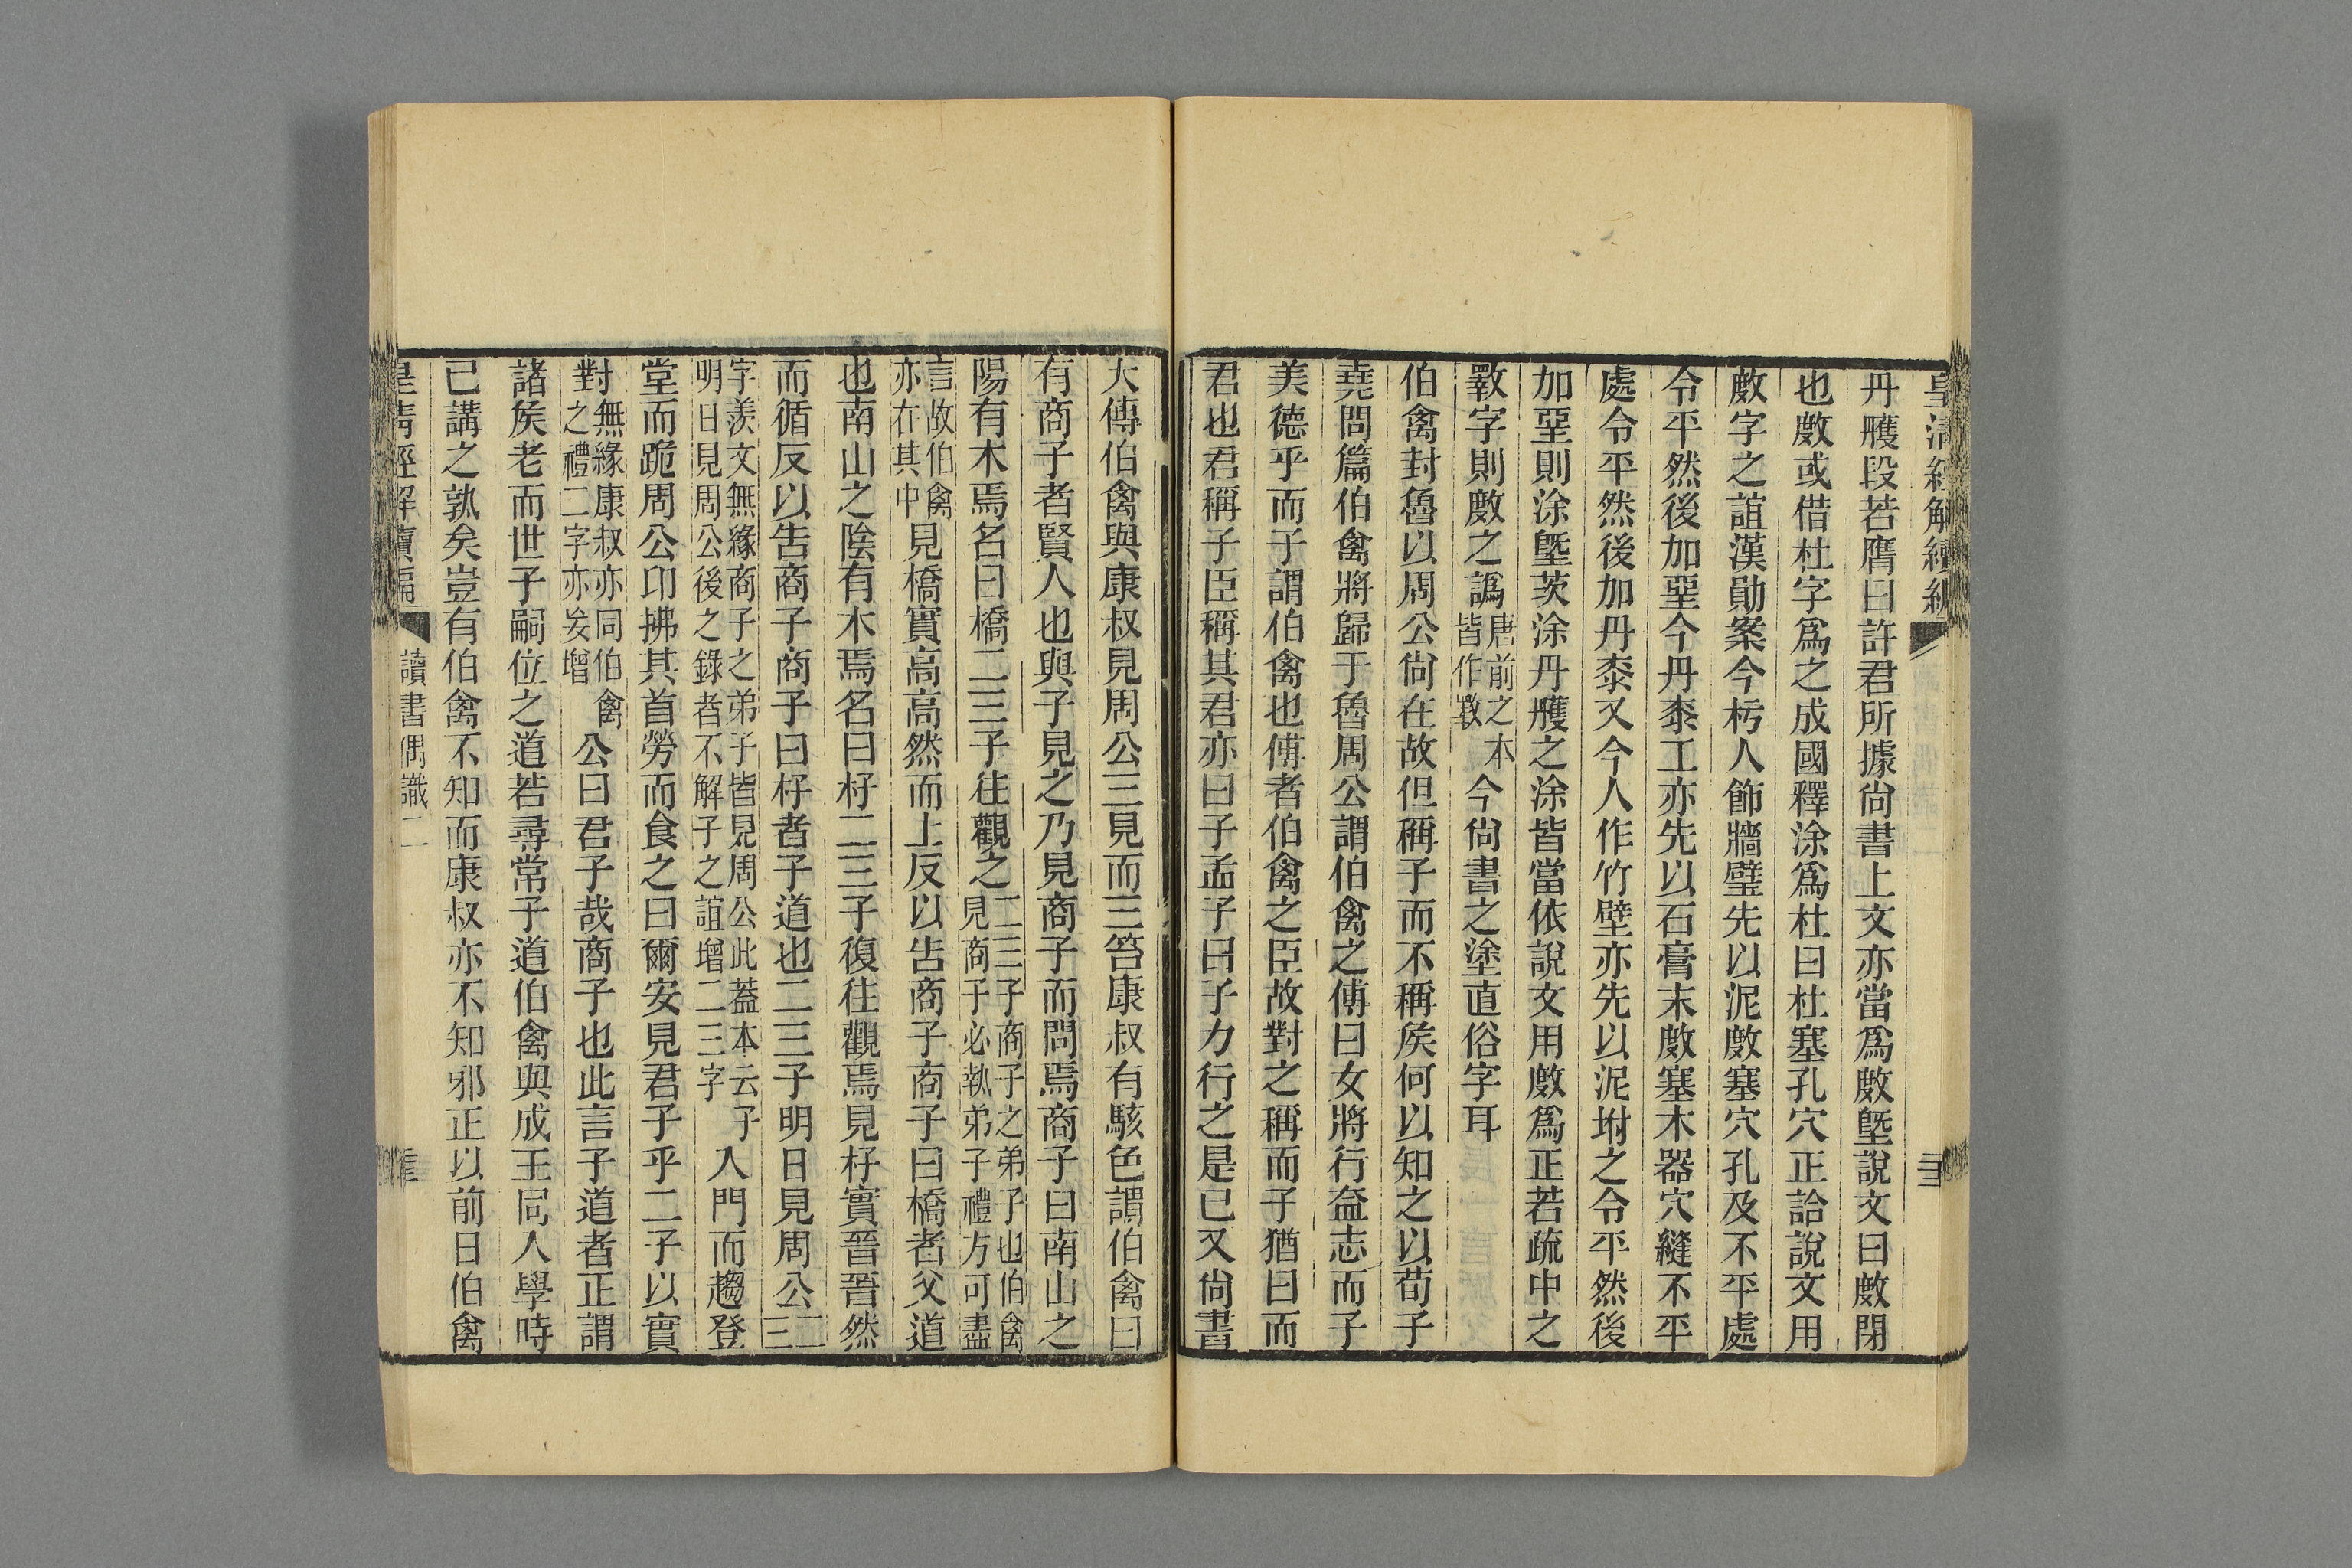 皇清經解續編
丹雘段若膺曰許君所據尙書上文亦當爲敷塈說文曰敷閉
也敷或借杜字爲之成國釋涂爲杜曰杜塞孔穴正詥說文用
敷字之誼漢勛案今杇人飾牆壁先以泥敷塞穴孔及不平處
令平然後加堊今丹桼工亦先以石膏末敷塞木器穴縫不平
處令平然後加丹桼又今人作竹壁亦先以泥坿之令平然後
加堊則涂塈茨涂丹雘之涂皆當依說文用敷爲正若疏中之
斁字則敷之譌唐前之本皆作斁今尙書之塗直俗字耳
伯禽封魯以周公尙在故但稱子而不稱矦何以知之以荀子
堯問篇伯禽將歸于魯周公謂伯禽之傅曰女將行盍志而子
美德乎而子謂伯禽也傅者伯禽之臣故對之稱而子猶曰而
君也君稱子臣稱其君亦曰子孟子曰子力行之是已又尙書
大傳伯禽與康叔見周公三見而三笞康叔有駭色謂伯禽曰
有商子者賢人也與子見之乃見商子而問焉商子曰南山之
陽有木焉名曰橋二三子往觀之二三子商子之弟子也伯禽見商子必執弟子禮方可盡
言故伯禽亦在其中見橋實高高然而上反以告商子商子曰橋者父道
也南山之陰有木焉名曰杍二三子復往觀焉見杍實晉晉然
而循反以告商子商子曰杍者子道也二三子明日見周公二三
字羨文無緣商子之弟子皆見周公此葢本云子明日見周公後之錄者不解子之誼增二三字入門而趨登
堂而跪周公卬拂其首勞而食之曰爾安見君子乎二子以實
對無緣康叔亦同伯禽之禮二字亦妄增公曰君子哉商子也此言子道者正謂
諸矦老而世子嗣位之道若尋常子道伯禽與成王同入學時
已講之孰矣豈有伯禽不知而康叔亦不知邪正以前日伯禽
皇清經解續編
讀書偶識二